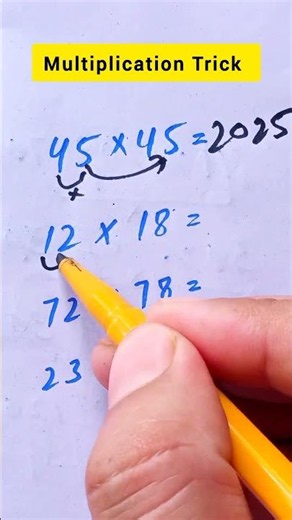 Multiplication Trick
45 × 45 = 2025
×
12 × 18 =
72 78 =
23